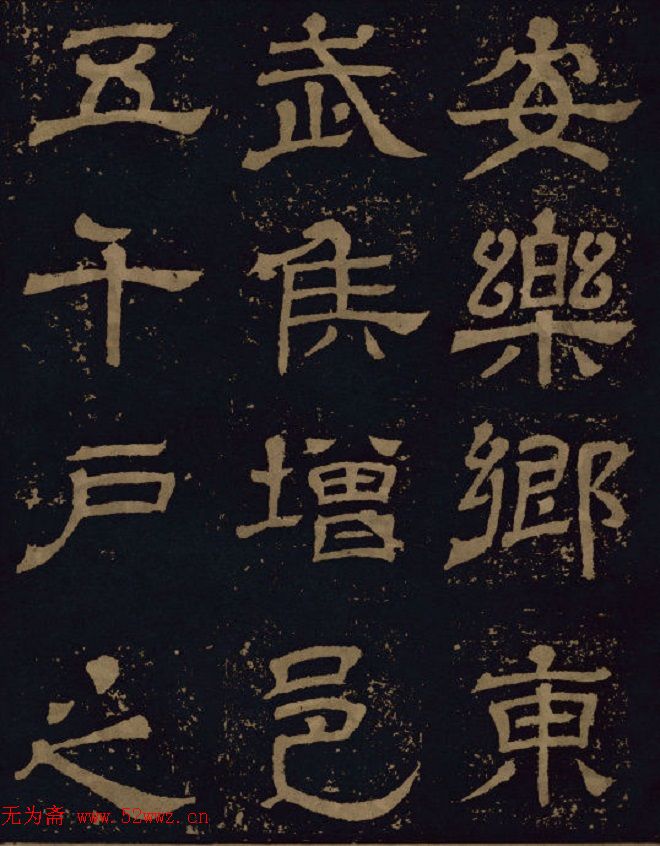 安樂鄉東
武侯增邑
五千户之
无为斋 www.52wwz.cn